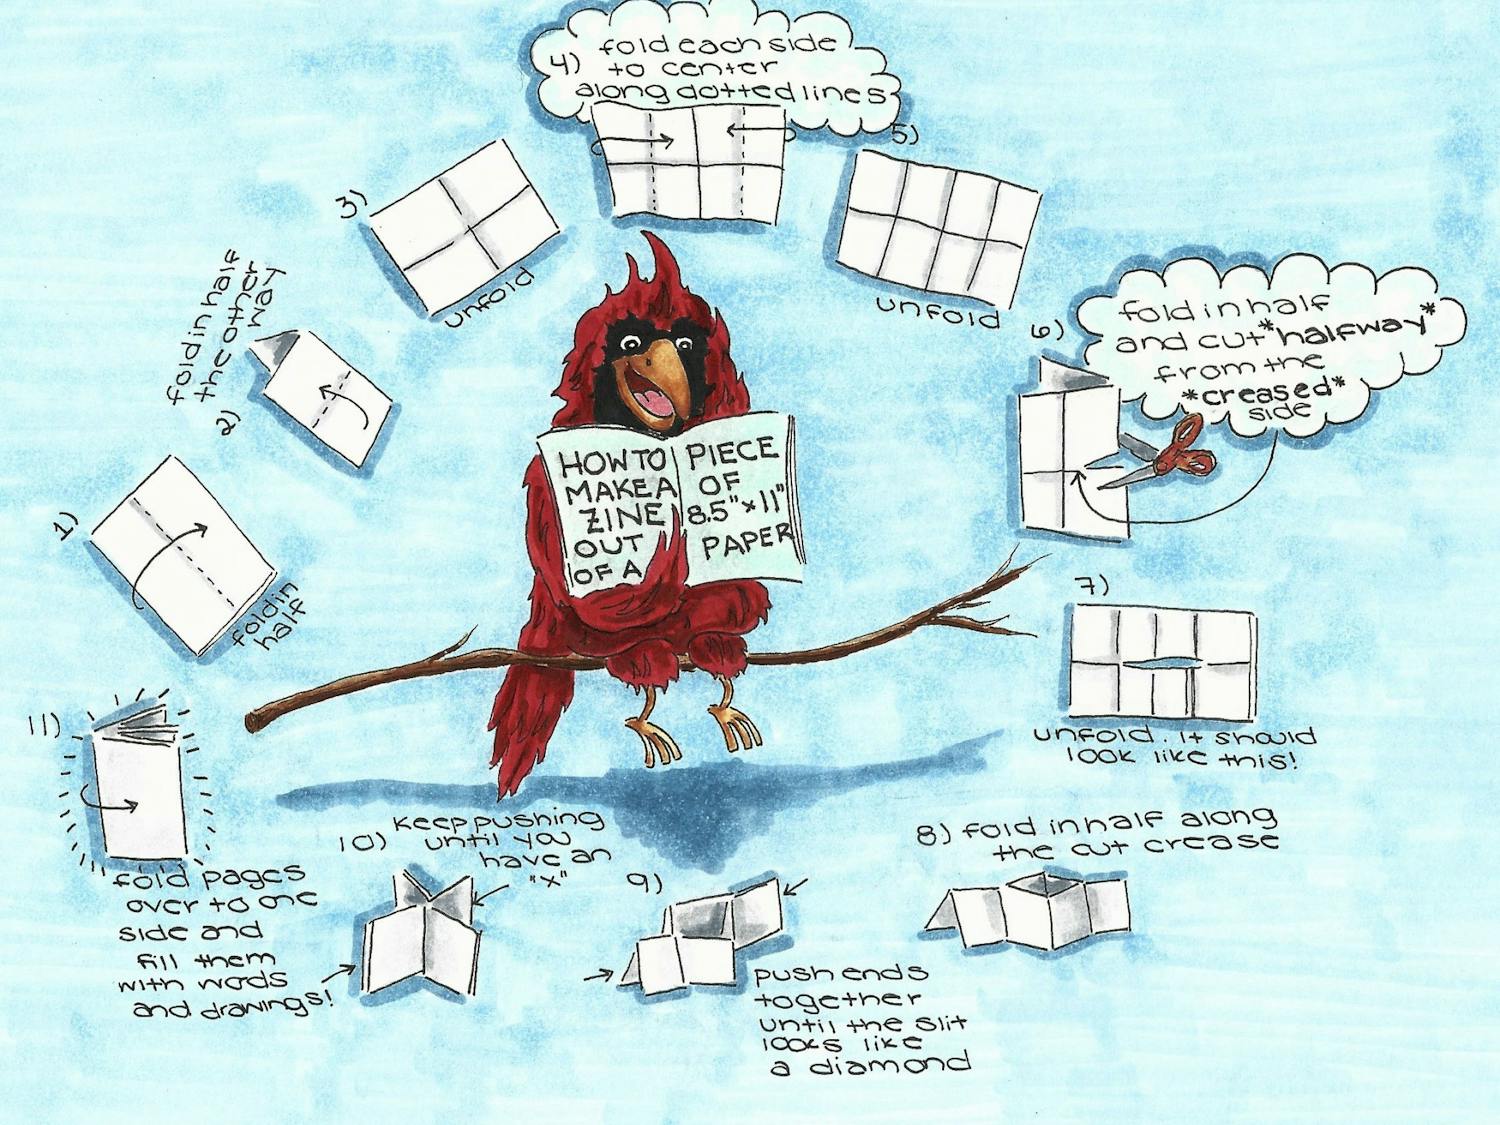 HOW TO
MAKE A
ZINE
OUT
OF A
PIECE
OF
8.5" x 11"
PAPER
1)
fold in
half
2)
fold in half
the other
way
3)
unfold
4) fold each side
to center
along dotted lines
5)
unfold
6)
fold in half
and cut *halfway*
from the
*creased*
side
7)
unfold. It should
look like this!
8) fold in half along
the cut crease
9)
push ends
together
until the slit
looks like
a diamond
10) keep pushing
until you
have an
"x"
11)
fold pages
over to one
side and
fill them
with words
and drawings!